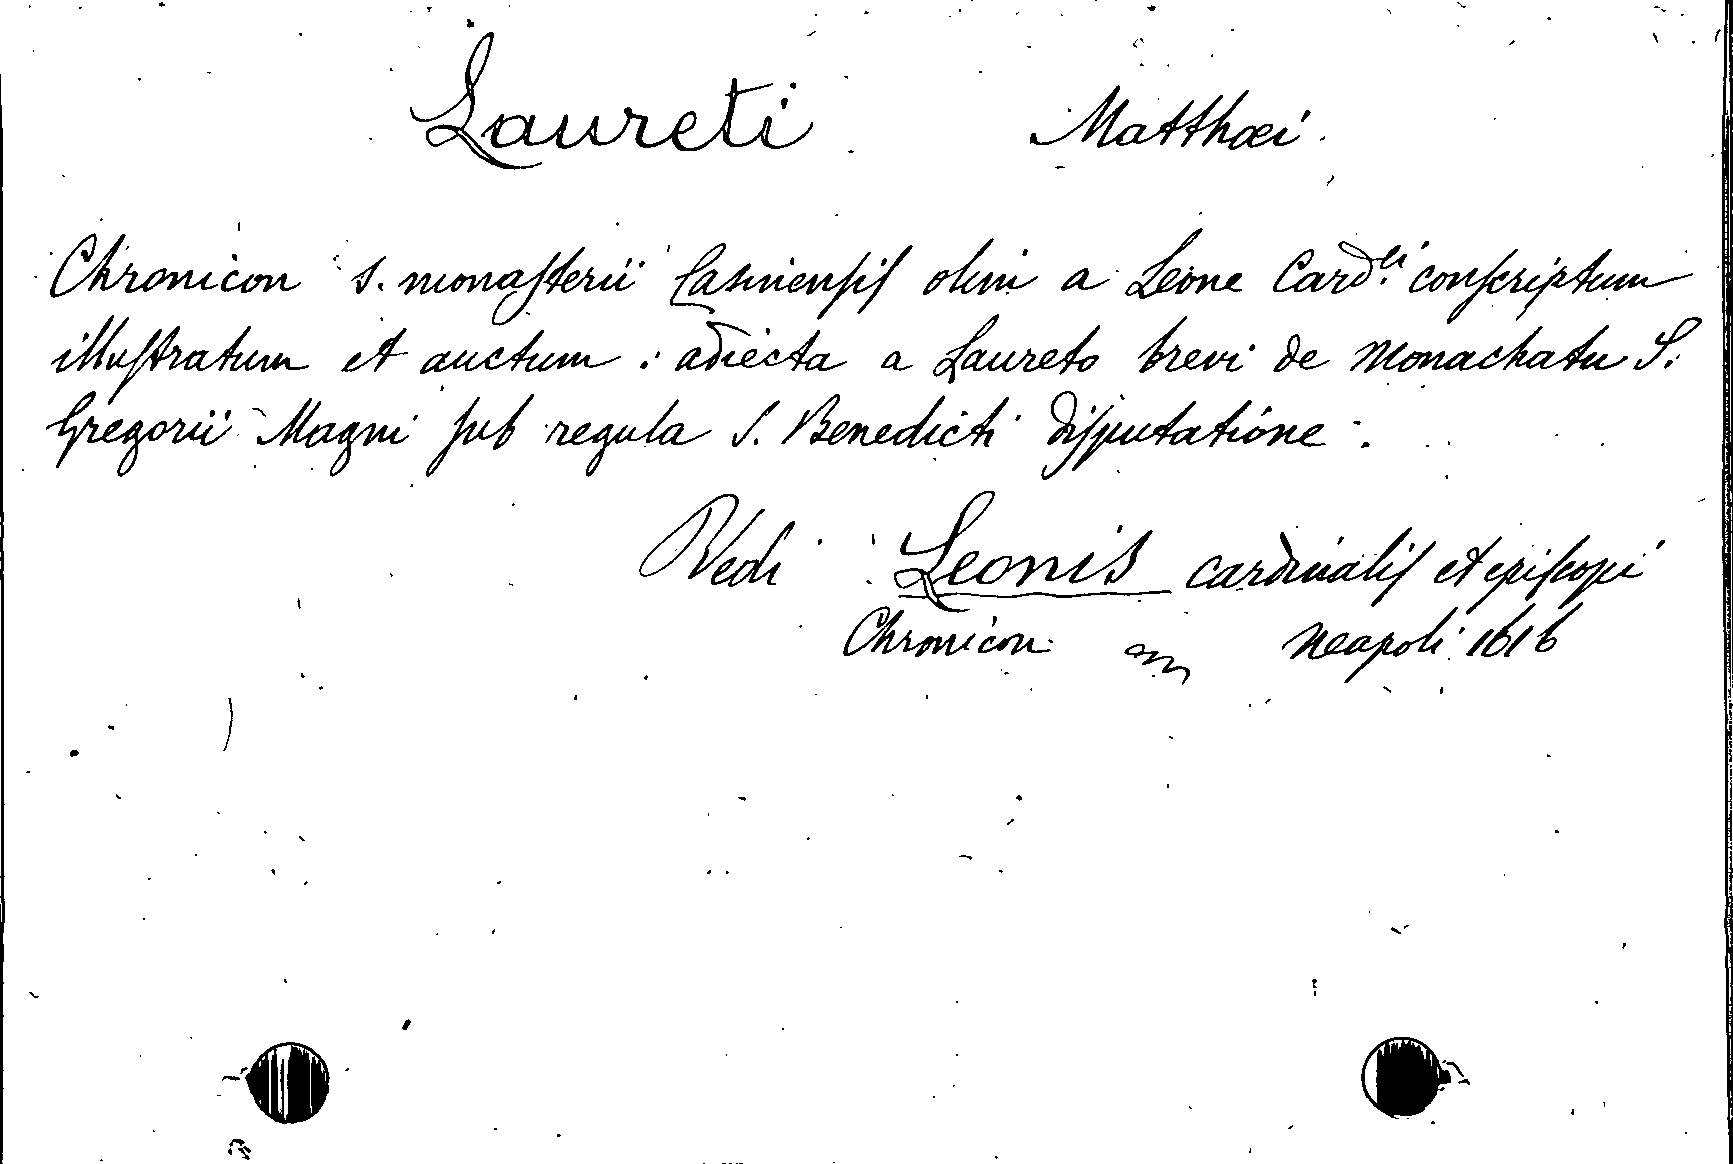 Laureti Matthæi.
Chronicon s. monaſterii Casinenſiſ olim a Leone Card.li conſcriptum
illuſtratum et auctum: adiecta a Laureto brevi de Monachatu S.
Gregorii Magni ſub regula S. Benedicti diſputatione.
Vedi: Leonis cardinaliſ et epiſcopi
Chronicon Neapoli 1616